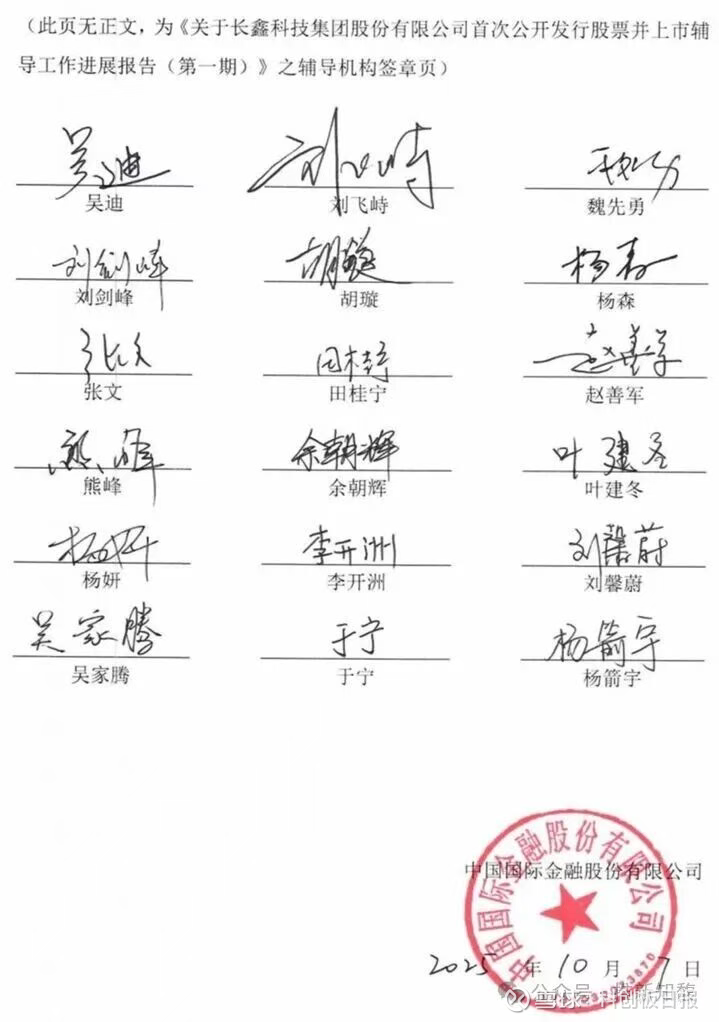 （此页无正文，为《关于长鑫科技集团股份有限公司首次公开发行股票并上市辅
导工作进展报告（第一期）》之辅导机构签章页）
吴迪 刘飞峙 魏先勇
吴迪 刘飞峙 魏先勇
刘剑峰 胡璇 杨森
刘剑峰 胡璇 杨森
张文 田桂宁 赵善军
张文 田桂宁 赵善军
熊峰 余朝辉 叶建冬
熊峰 余朝辉 叶建冬
杨妍 李开洲 刘馨蔚
杨妍 李开洲 刘馨蔚
吴家腾 于宁 杨箭宇
吴家腾 于宁 杨箭宇
中国国际金融股份有限公司
中国国际金融股份有限公司
2025 年 10 月 7 日
雪球：科创板日报